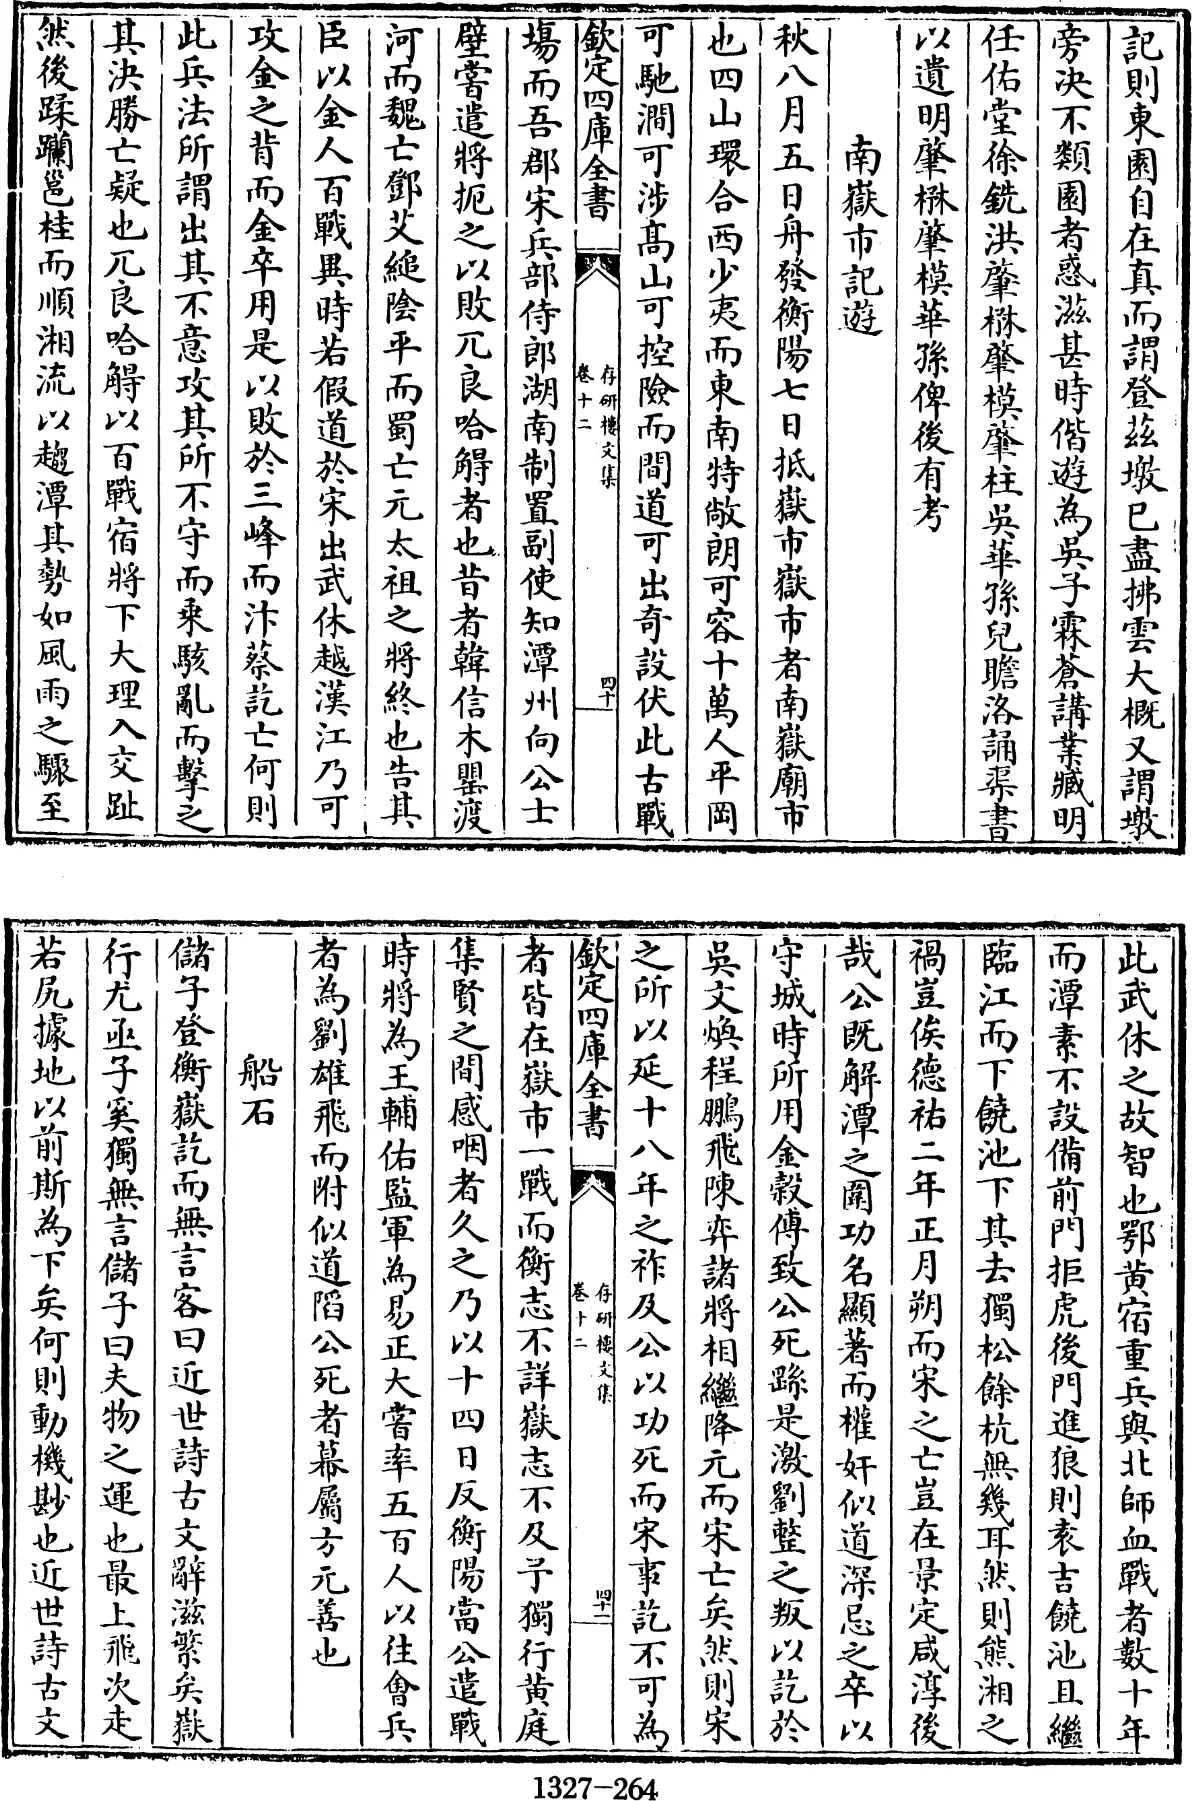 記則東園自在真而謂登茲墩已盡拂雲大概又謂墩
旁決不類園者惑滋甚時偕遊為吳子霖蒼講業臧明
任佑堂徐銑洪肇楙肇模肇柱吳華孫兒瞻洛誦槼書
以遺明肇楙肇模華孫俾後有考
南嶽市記遊
秋八月五日舟發衡陽七日抵嶽市嶽市者南嶽廟市
也四山環合西少夷而東南特敞朗可容十萬人平岡
可馳澗可涉髙山可控險而間道可出奇設伏此古戰
欽定四庫全書
存研樓文集
卷十二
四十
塲而吾郡宋兵部侍郎湖南制置副使知潭州向公士
璧嘗遣將扼之以敗兀良哈䚟者也昔者韓信木罌渡
河而魏亡鄧艾縋陰平而蜀亡元太祖之將終也告其
臣以金人百戰異時若假道於宋出武休越漢江乃可
攻金之背而金卒用是以敗於三峰而汴蔡訖亡何則
此兵法所謂出其不意攻其所不守而乘駭亂而擊之
其決勝亡疑也兀良哈䚟以百戰宿將下大理入交趾
然後蹂躪邕桂而順湘流以趨潭其勢如風雨之驟至
此武休之故智也鄂黄宿重兵與北師血戰者數十年
而潭素不設備前門拒虎後門進狼則袁吉饒池且繼
臨江而下饒池下其去獨松餘杭無幾耳然則熊湘之
禍豈俟德祐二年正月朔而宋之亡豈在景定咸淳後
哉公既解潭之圍功名顯著而權奸似道深忌之卒以
守城時所用金榖傅致公死繇是激劉整之叛以訖於
吳文煥程鵬飛陳弈諸將相繼降元而宋亡矣然則宋
之所以延十八年之祚及公以功死而宋事訖不可為
欽定四庫全書
存研樓文集
卷十二
四十一
者皆在嶽市一戰而衡志不詳嶽志不及予獨行黄庭
集賢之間感咽者久之乃以十四日反衡陽當公遣戰
時將為王輔佑監軍為易正大嘗率五百人以往會兵
者為劉雄飛而附似道陷公死者幕屬方元善也
船石
儲子登衡嶽訖而無言客曰近世詩古文辭滋繁矣嶽
行尤亟子奚獨無言儲子曰夫物之運也最上飛次走
若尻據地以前斯為下矣何則動機尠也近世詩古文
1327-264